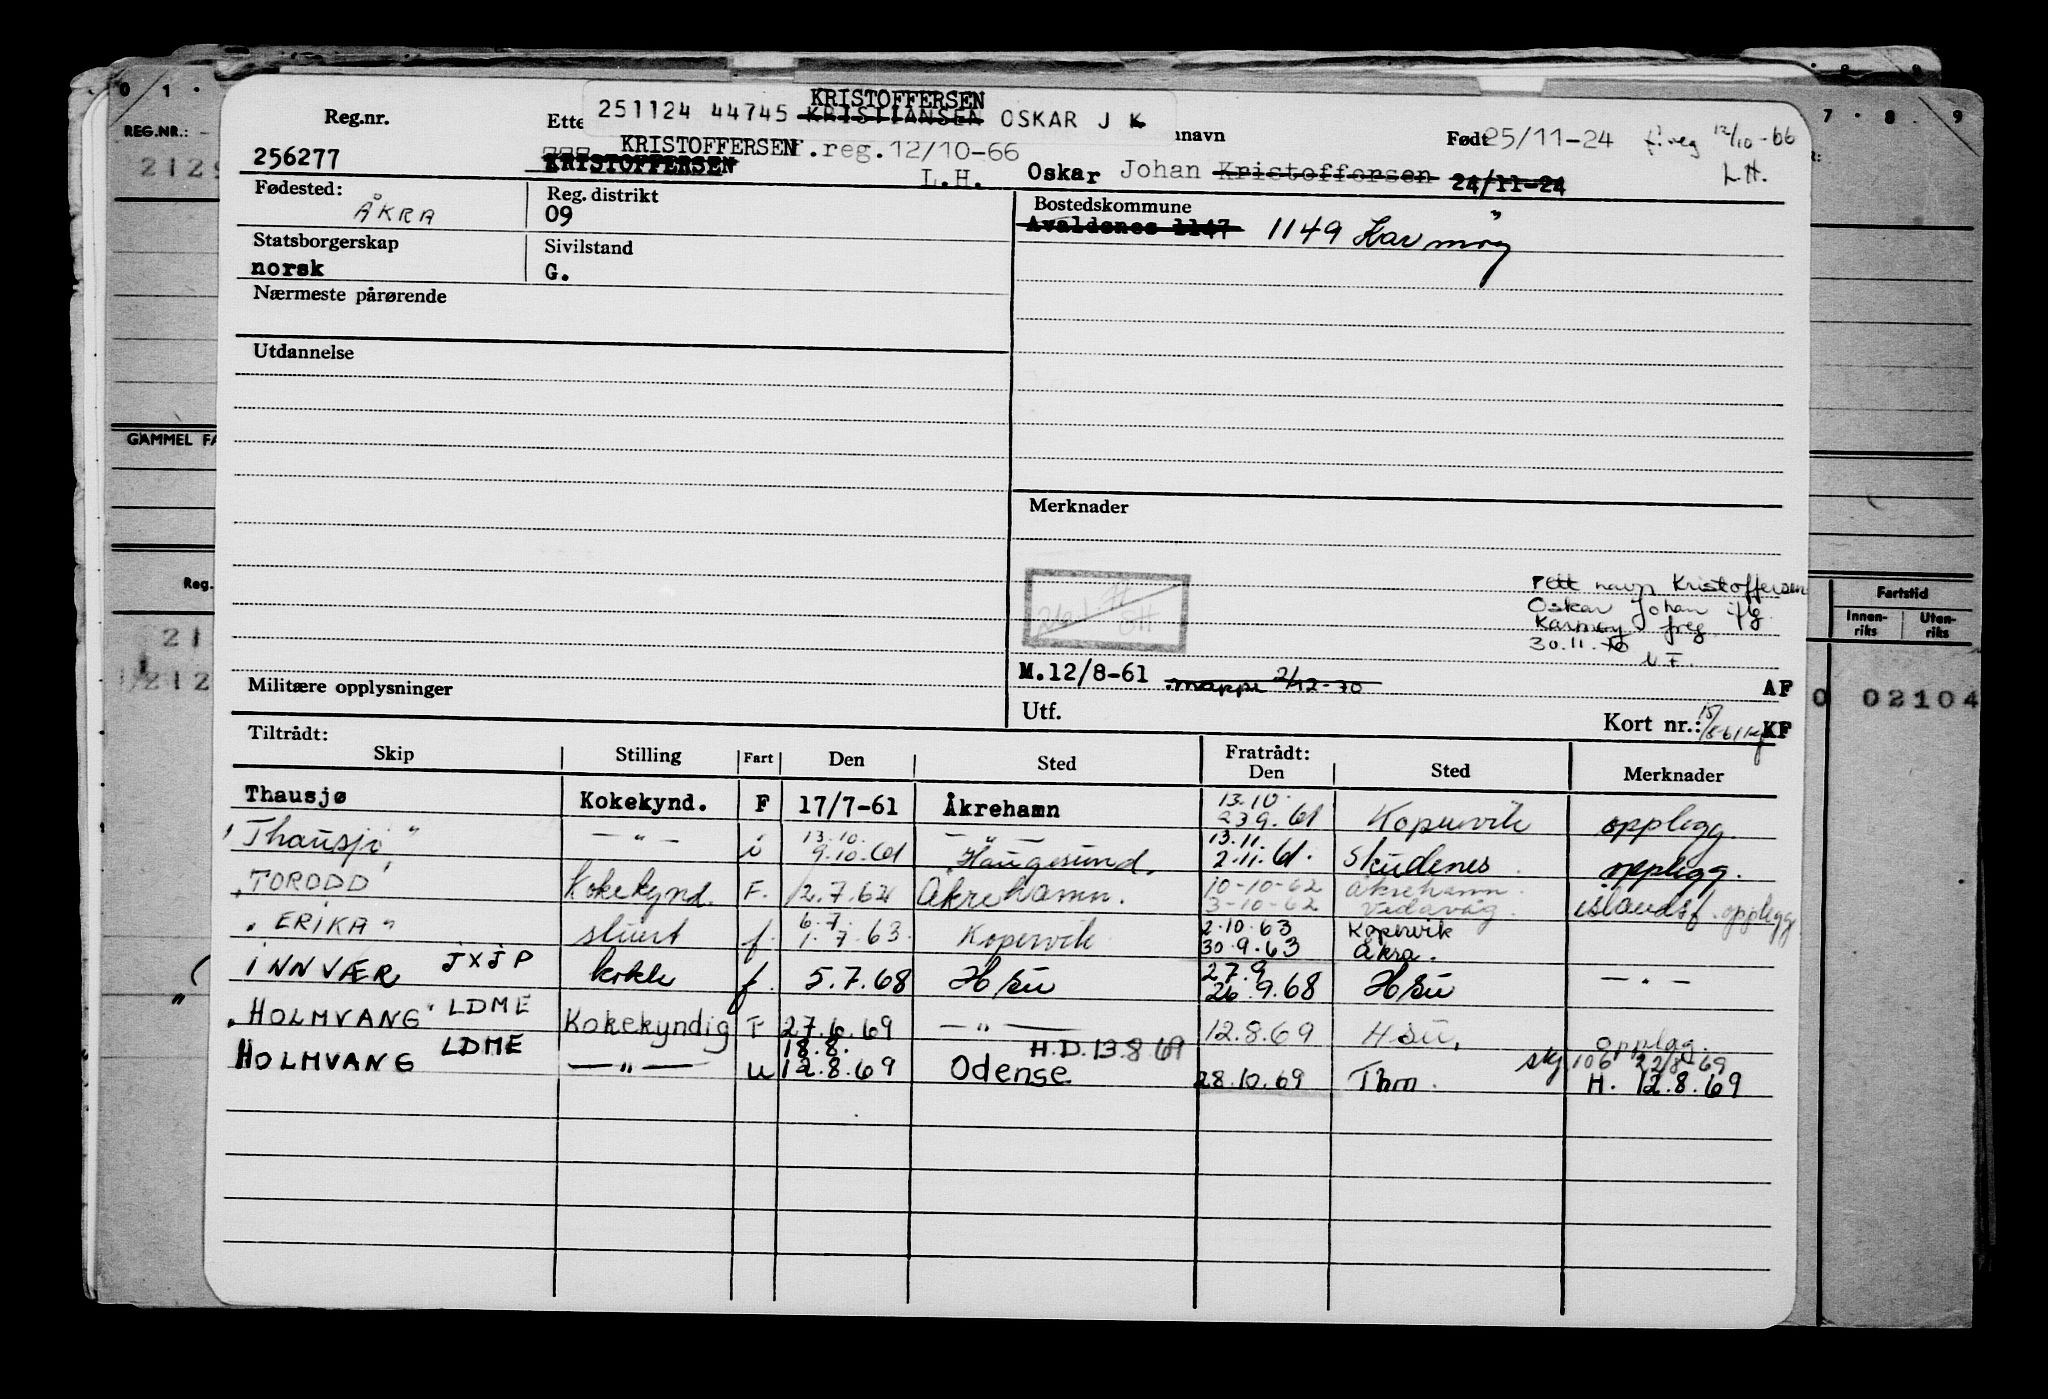 0 1 .
7 . 8 . 9
REG.NR.:
212
KRISTOFFERSEN
251124 44745 KRISTIANSEN OSKAR J K
Reg.nr.
Ette
nnavn
Født 25/11-24 f.reg 12/10-66
L.H.
256277
KRISTOFFERSEN f.reg.12/10-66
KRISTOFFERSEN
L.H.
Oskar Johan Kristoffersen 24/11-24
Fødested:
ÅKRA
Reg. distrikt
09
Bostedskommune
Avaldsnes 1147 1149 Karmøy
Statsborgerskap
norsk
Sivilstand
G.
Nærmeste pårørende
Utdannelse
GAMMEL FA
Merknader
Reg.
Fartstid
Innen-
riks
Uten-
riks
Rett navn Kristoffersen
Oskar Johan iflg
Karmøy freg.
30.11.70
21
212
M.12/8-61 mappe 2/12-70
AF
0 02104
Militære opplysninger
Utf.
Kort nr.: KF
Tiltrådt:
Skip Stilling Fart Den Sted Fratrådt: Den Sted Merknader
Thausjø Kokekynd. F 17/7-61 Åkrehamn 13.10. 23.9.61 Kopervik opplegg.
"Thausjø" — " — u 13.10. 9.10.61 — " — Haugesund. 13.11. 2.11.61. Skudenes opplegg.
"TORODD" Kokekynd. F. 12.7.62 Åkrehamn. 10-10-62 3-10-62 Åkrehamn Vedavåg. islandsf. opplegg
"ERIKA" stuert f. 6.7. 1.7.63. Kopervik 2.10.63 30.9.63 Kopervik Åkra.
INNVÆR JXJP kokk f. 5.7.68 H su 27.9 26.9.68 H su — " —
"HOLMVANG" LDME Kokekyndig F 27.6.69 — " — 12.8.69 H su. opplag.
HOLMVANG LDME — " — u 18.8. 12.8.69 H.D. 13.8.69 Odense 28.10.69 Thm. skj 106 22/8-69 H. 12.8.69